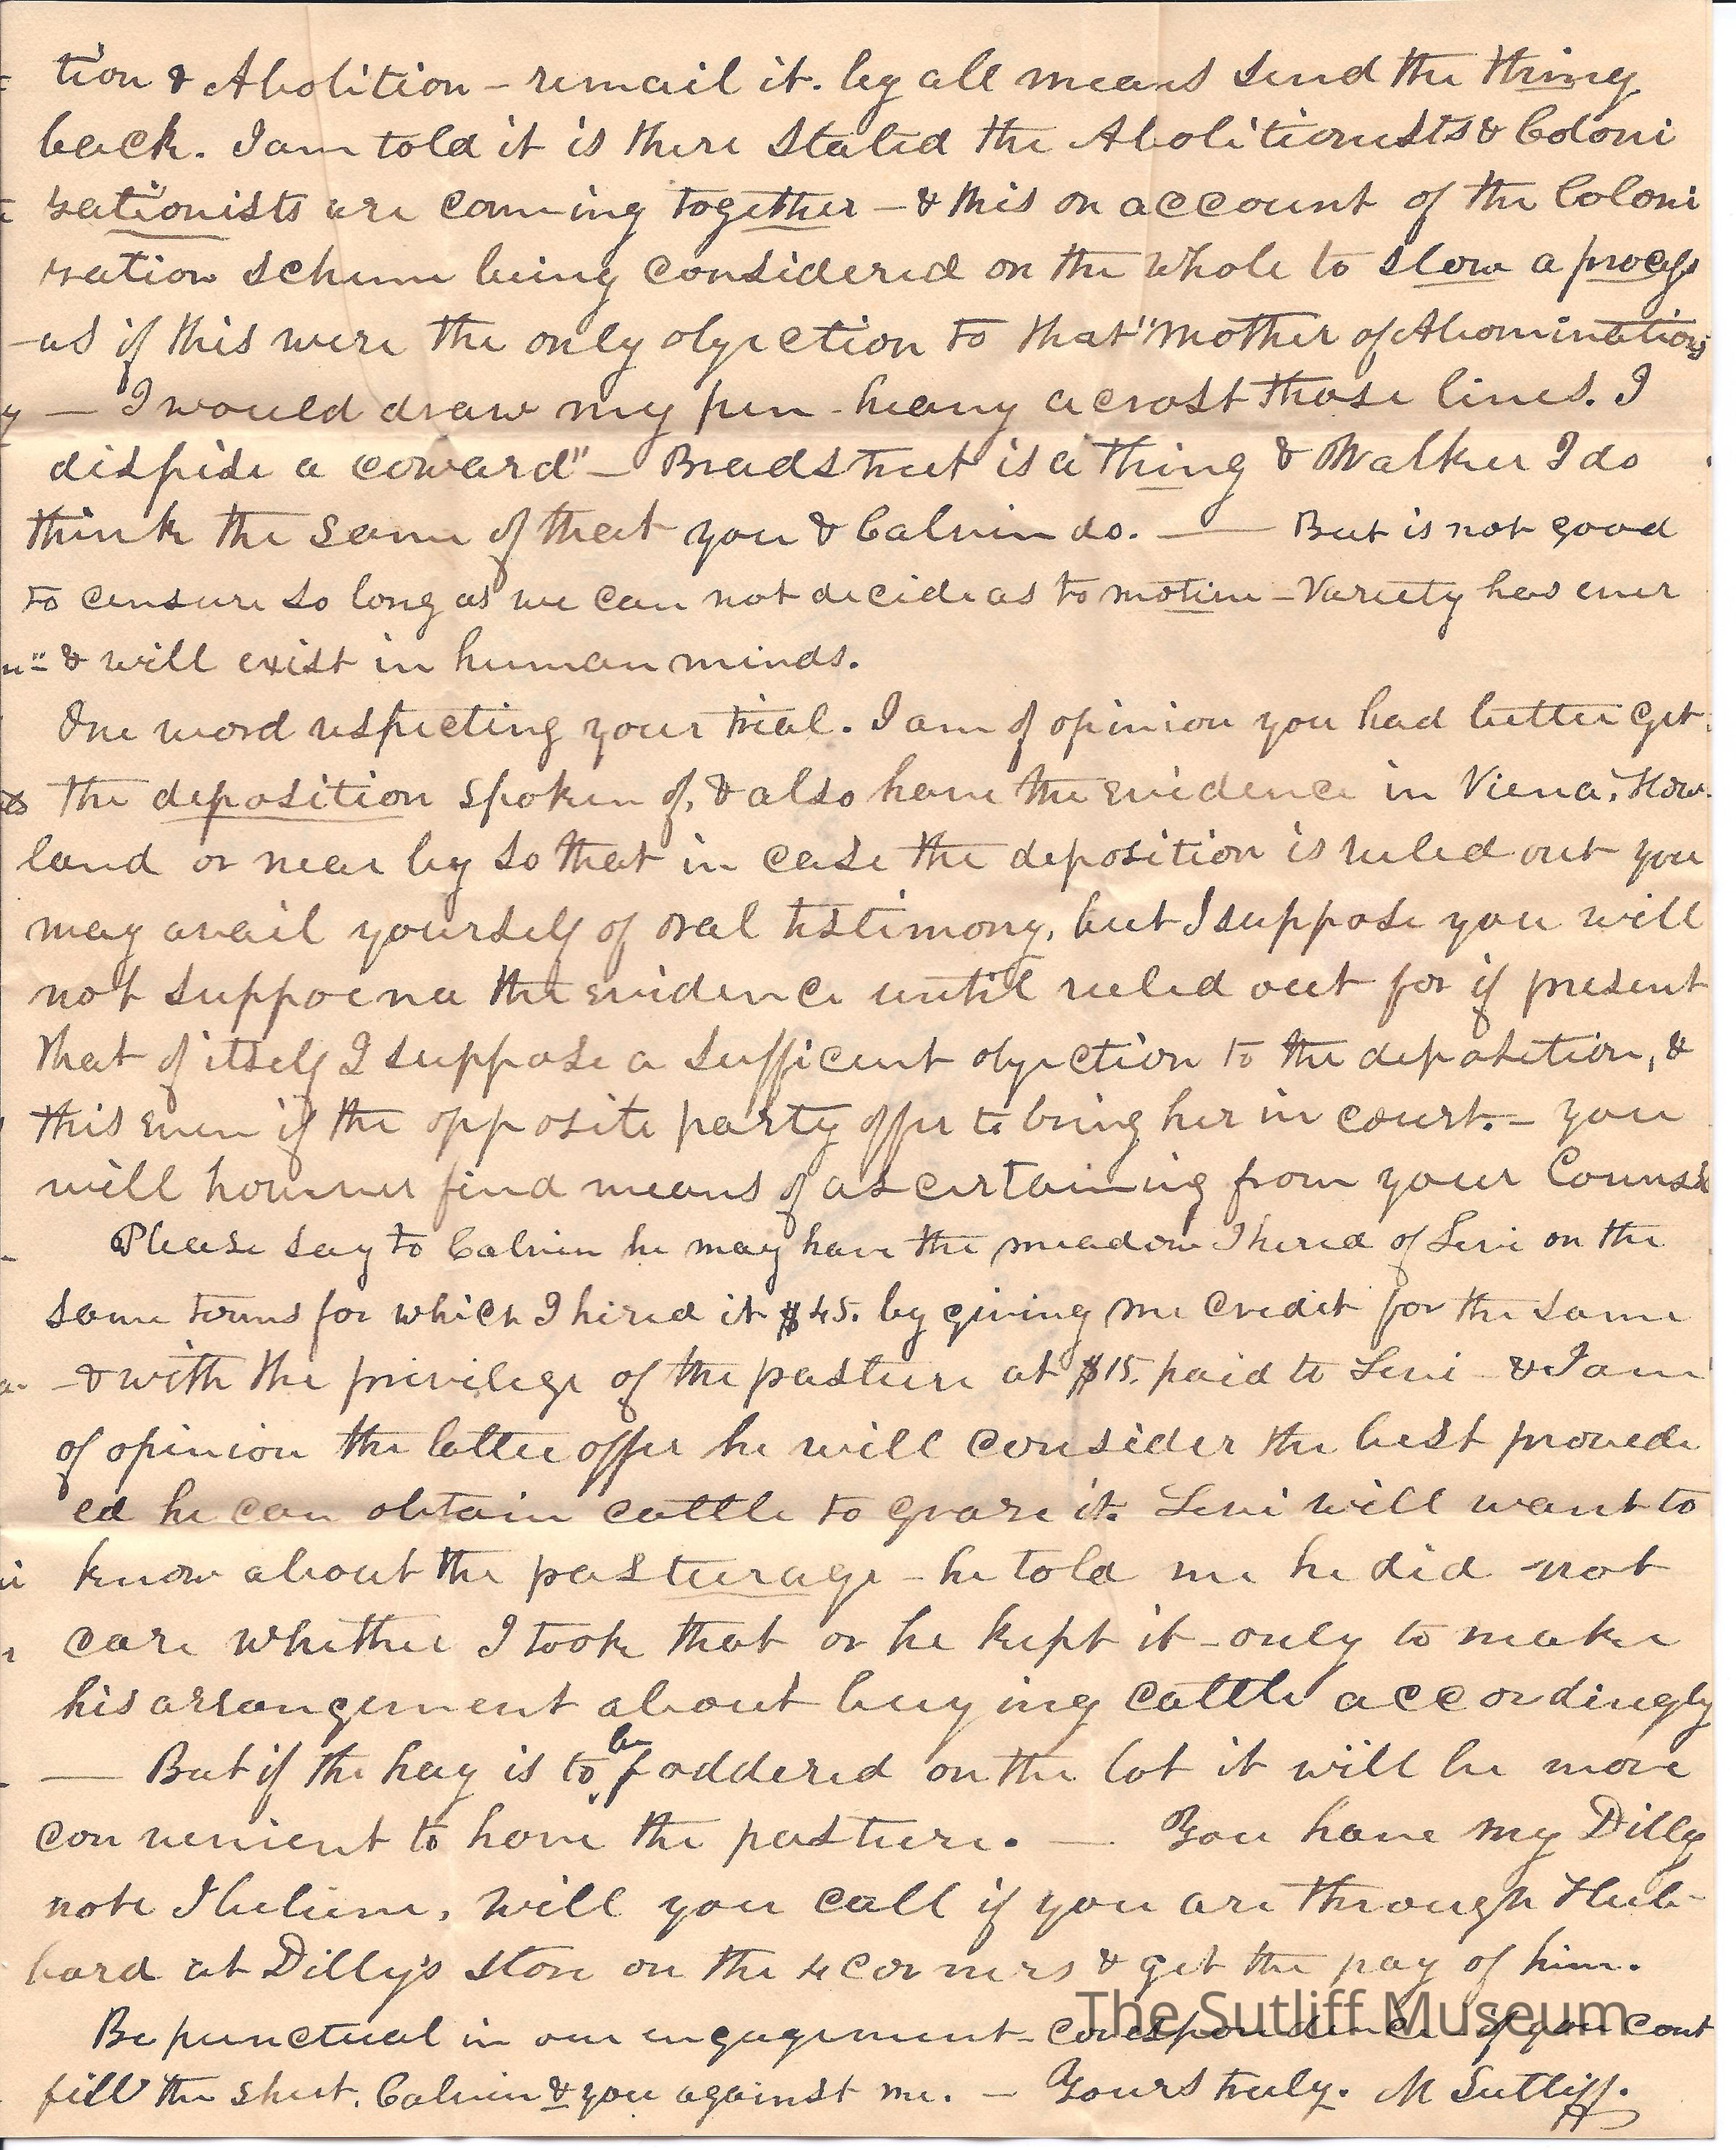 tion & Abolition – remail it. by all means send the thing
back. I am told it is there stated the Abolitionists & Coloni
zationists are coming together – & this on account of the Coloni
zation scheme being considered on the whole to slow a process
– as if this were the only objection to that "Mother of Abominations
— I would draw my pen heavy acrost those lines. I
dispise a coward" – Bradstreet is a thing & Walker I do
think the same of that you & Calvin do. — But is not good
to censure so long as we can not decide as to motive – Variety has ever
& will exist in human minds.
One word respecting your trial. I am of opinion you had better get
the deposition spoken of, & also have the evidence in Viena, How-
land or near by so that in case the deposition is ruled out you
may avail yourself of oral testimony, but I suppose you will
not suppoena the evidence until ruled out for if present
that of itself I suppose a sufficent objection to the deposition, &
this even if the opposite party offer to bring her in court. – you
will however find means of ascertaining from your Counsel
Please say to Calvin he may have the meadow I hired of Levi on the
same terms for which I hired it $45. by giving me credit for the same
– & with the privilege of the pasture at $15. paid to Levi – & I am
of opinion the latter offer he will consider the best provede
ed he can obtain cattle to graze it. Levi will want to
know about the pasturage – he told me he did not
care whether I took that or he kept it – only to make
his arrangement about buying cattle accordingly
— But if the hay is to be foddered on the lot it will be more
convenient to have the pasture. — You have my Dilly
note I believe, will you call if you are through Hub-
bard at Dilly's store on the 4 corners & get the pay of him.
Be punctual in our engagement – correspondence if you cant
fill the sheet. Calvin & you against me. – Yours truly. M Sutliff.
The Sutliff Museum